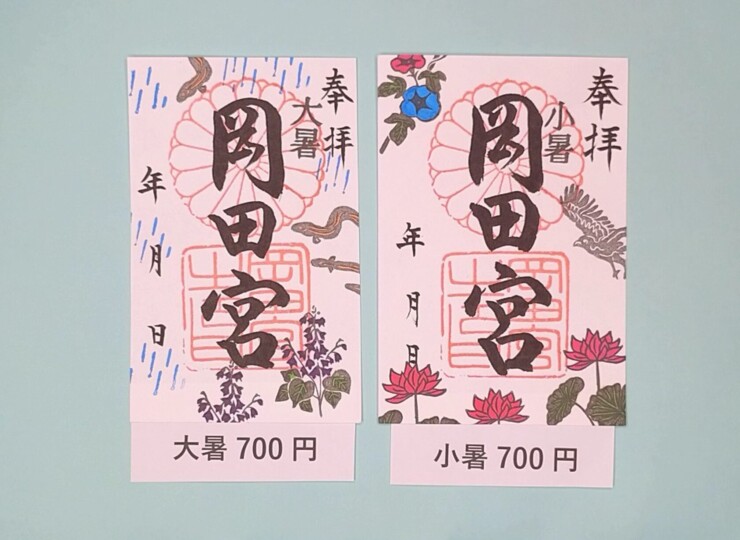 奉拝
大暑
岡田宮
年
月
日
大暑 700 円
奉拝
小暑
岡田宮
年
月
日
小暑 700 円